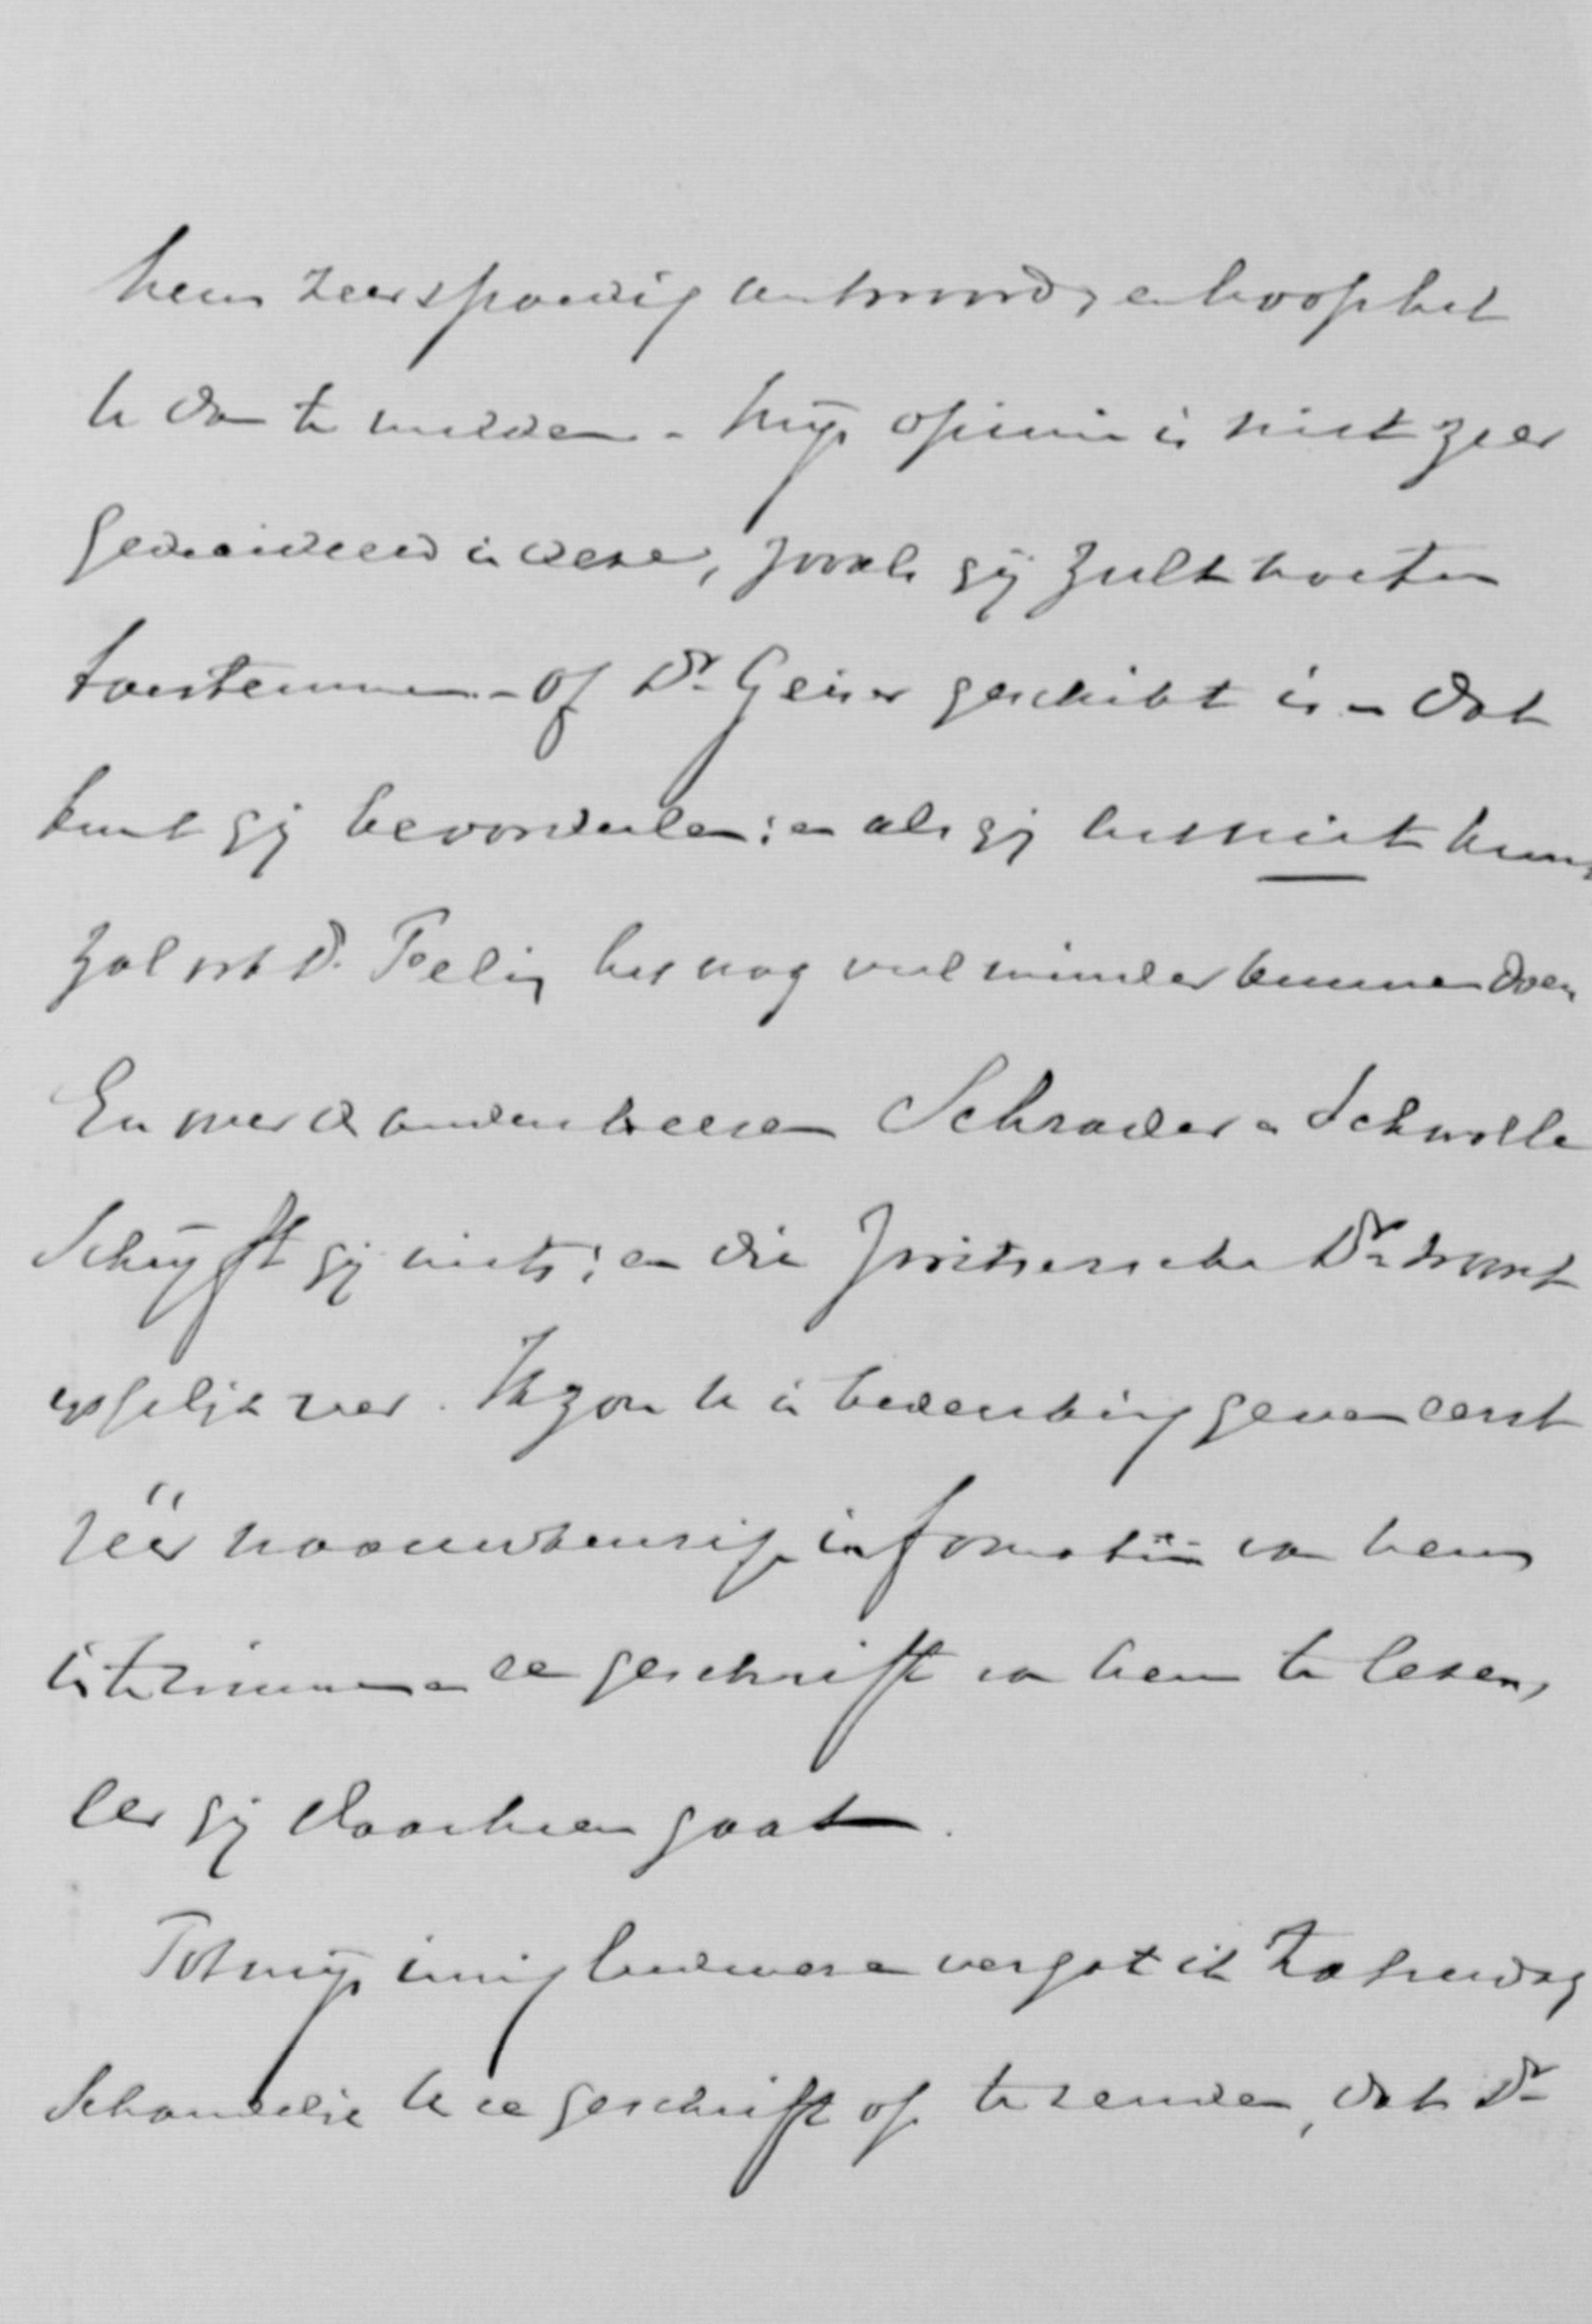 hem zeer spoedig antwoord, en hoop het
U dan te melden - Mijn opinie is niet zeer
gedecideerd in deze, zooals gij zult moeten
toestemmen - Of Dr. Geiser geschikt is - dat
kunt gij beoordeelen; en als gij het niet kunt
zal ook Dr. Peelig het nog veel minder kunnen doen
En over de andere heeren Schrader en Schwolle
Schrijft gij niets; en die Zwitsersche Dr. woont
ijsselijk ver. Ik zou U in bedenking geven eerst
zéér naauwkeurige informatiën van hem
in te winnen en een geschrift van hem te lezen,
eer gij daarheen gaat.
Tot mijn innig leedwezen vergat ik Zaturdag
Schandelijk U een geschrift op te zenden, dat Dr.